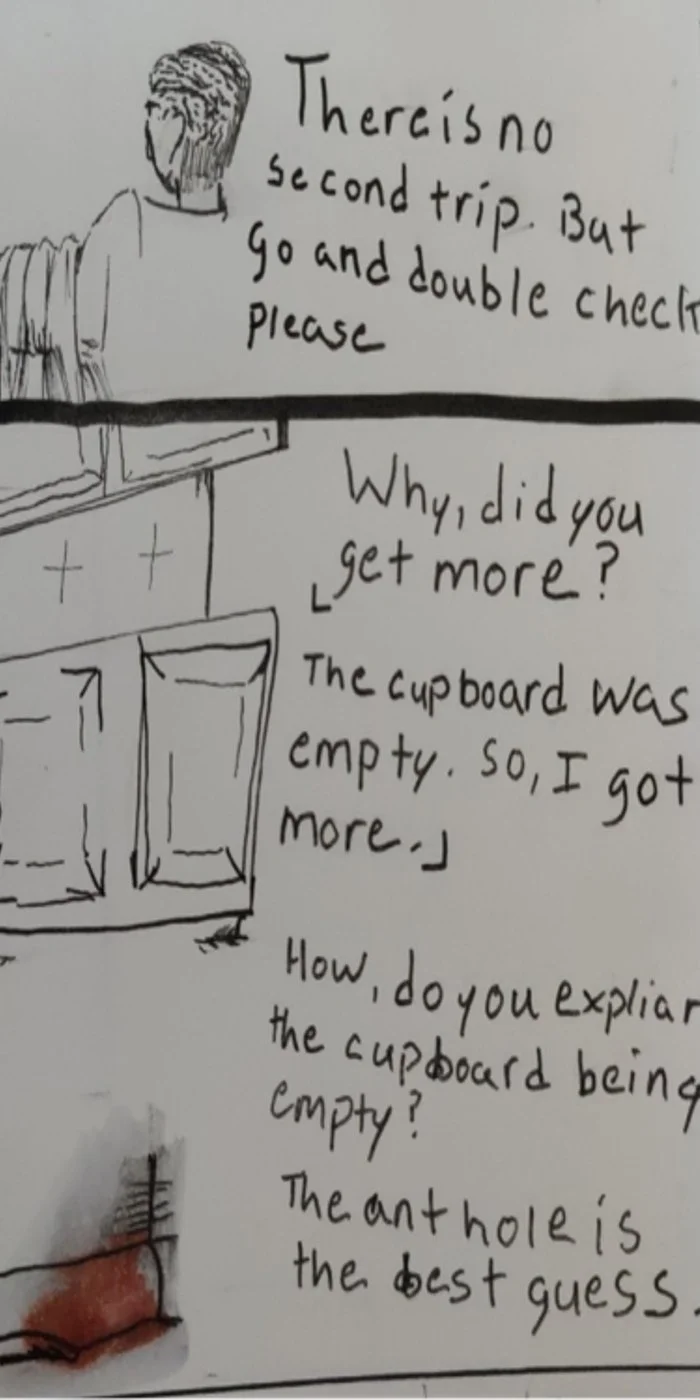 There is no
second trip. But
go and double check
please
Why, did you
get more?
The cupboard was
empty. So, I got
more.」
How, do you expliar
the cupboard being
empty?
The ant hole is
the best guess.